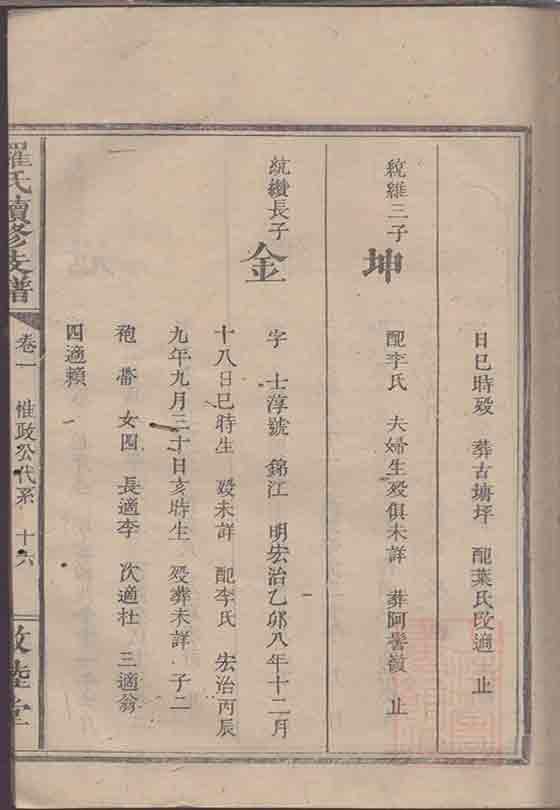 日巳時歿 葬古塘坪 配葉氏改適 止
統維三子
坤
配李氏 夫婦生歿俱未詳 葬阿謦嶺 止
統纘長子
金
字 士淳號 錦江 明宏治乙卯八年十二月
十八日巳時生 歿未詳 配李氏 宏治丙辰
九年九月三十日亥時生 歿葬未詳 子二
袍 女四 長適李 次適杜 三適翁
四適賴
羅氏續修支譜
卷一 惟政公代系 十六
敦睦堂